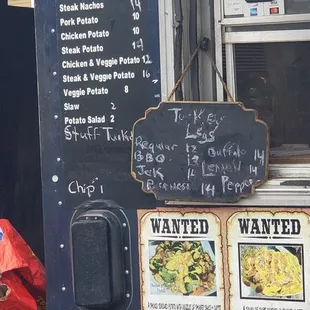 Steak Nachos 14
Pork Potato 10
Chicken Potato 10
Steak Potato 14
Chicken & Veggie Potato 12
Steak & Veggie Potato 16
Veggie Potato 8
Slaw 2
Potato Salad 2
Stuff Turke
Chip's
Turkey
Legs
Regular 12 Buffalo 14
BBQ 13 Lemon
Jerk 14 Pepper 14
WANTED WANTED